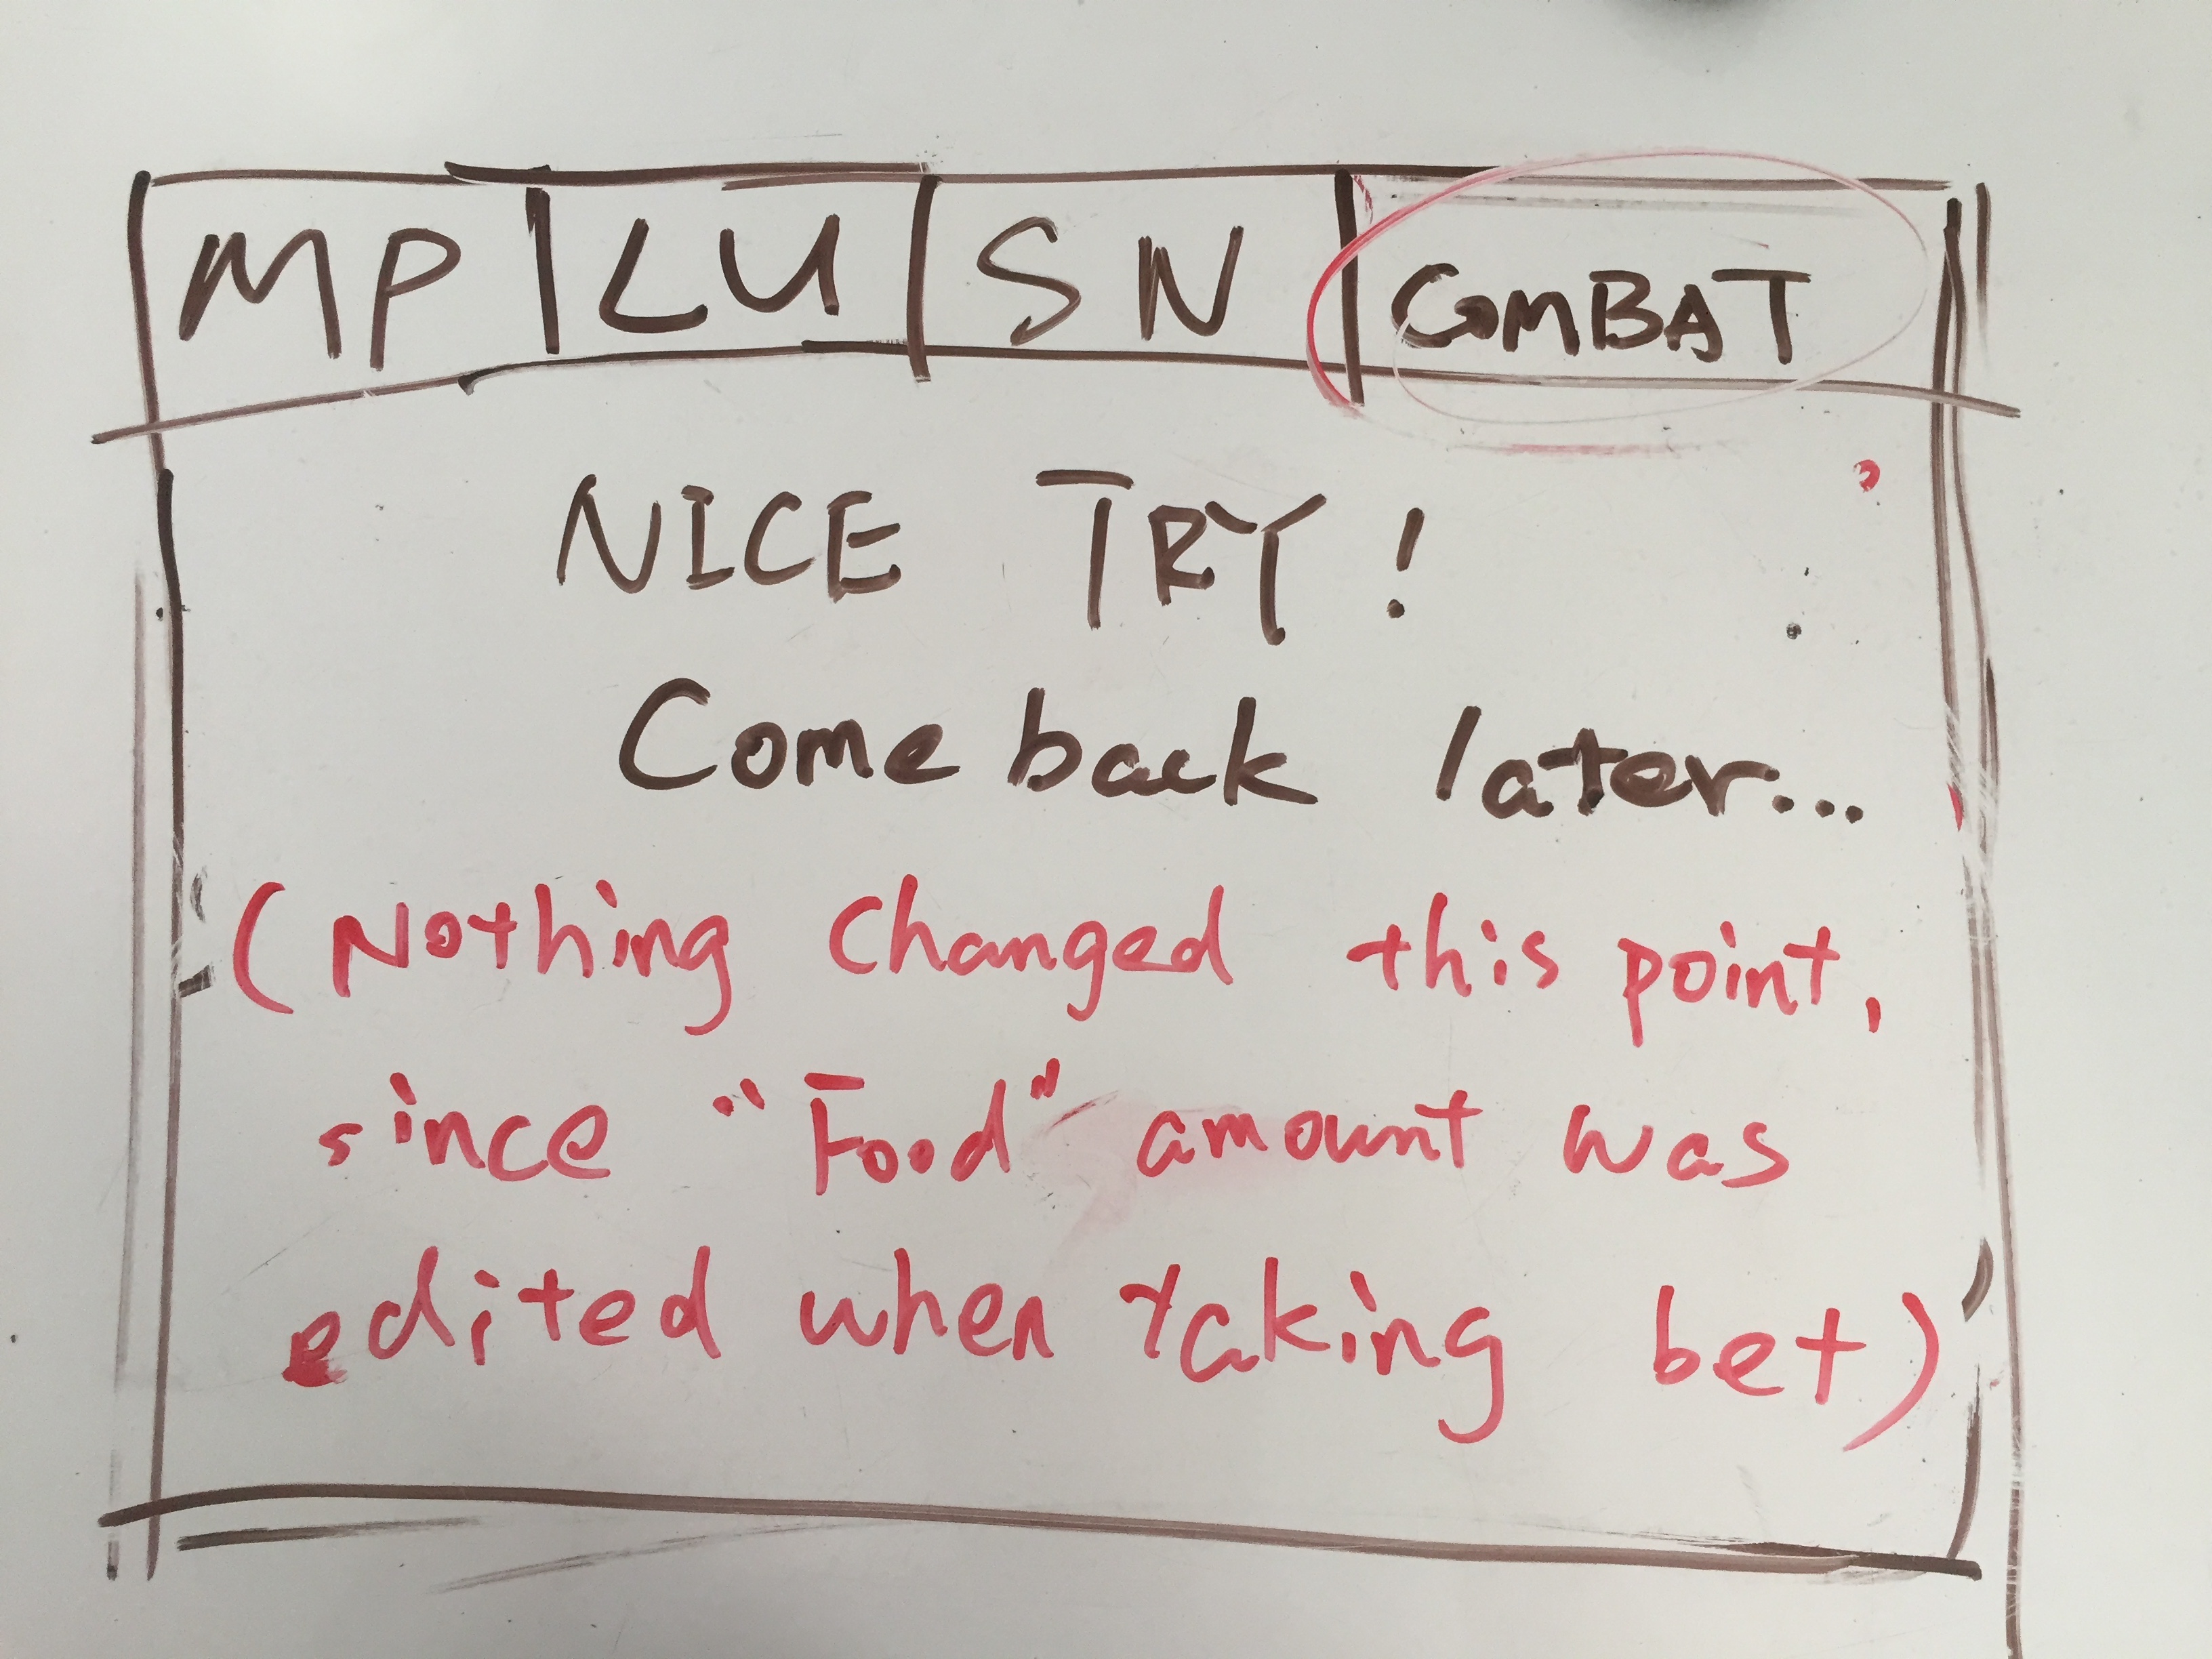 MP LU SN COMBAT
NICE TRY!
Come back later...
(Nothing changed this point,
since "Food" amount was
edited when taking bet)